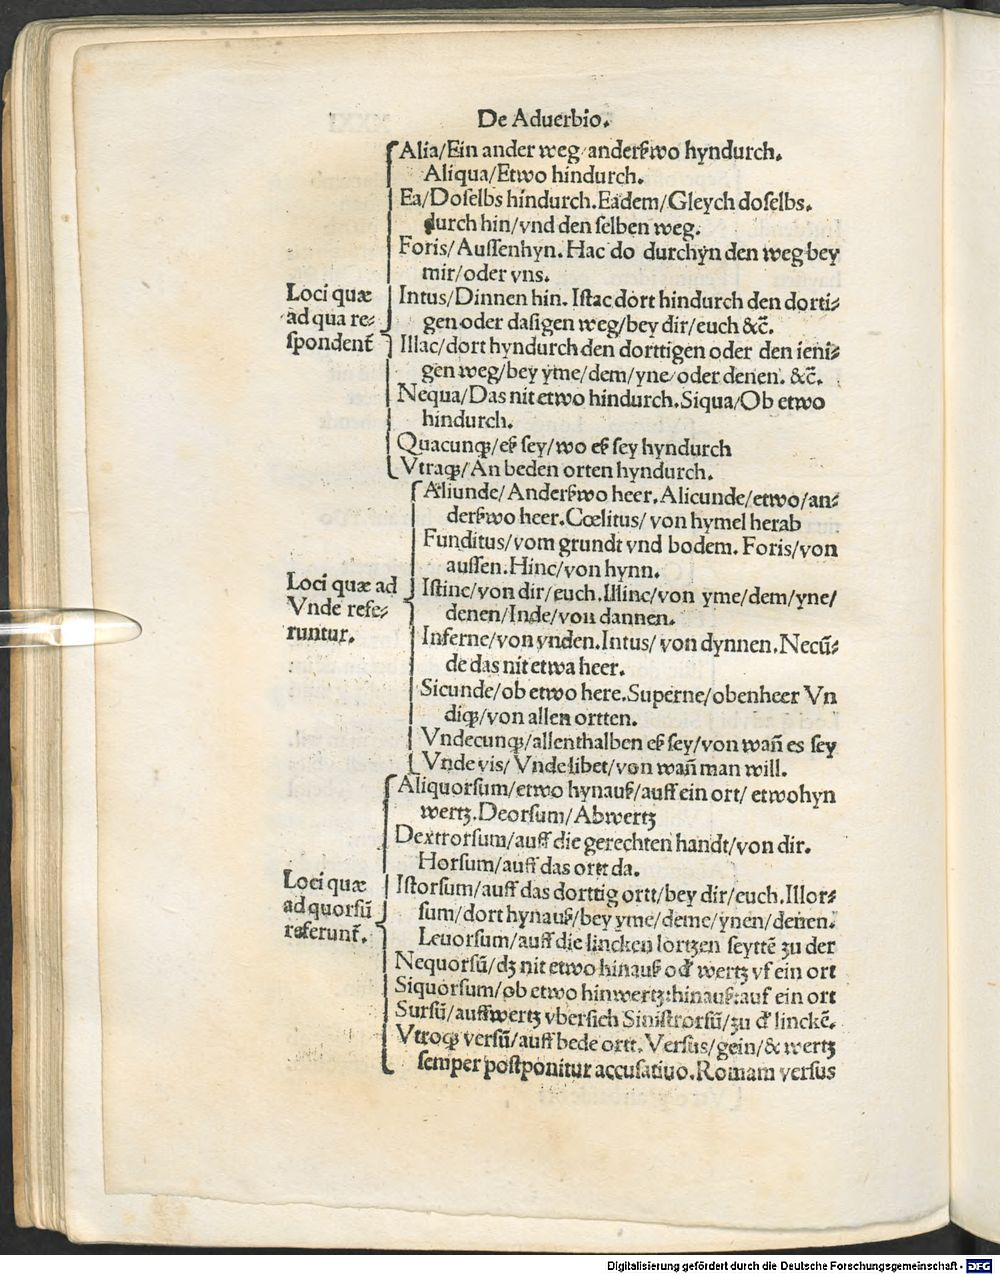 De Aduerbio.
Alia/Ein ander weg anderßwo hyndurch.
Aliqua/Etwo hindurch.
Ea/Doſelbs hindurch.Eadem/Gleych doſelbs.
durch hin/vnd den ſelben weg.
Foris/Auſſenhyn. Hac do durchyn den weg bey
mir/oder vns.
Loci quæ
ad qua re⸗
ſpondent̃
Intus/Dinnen hin. Iſtac dort hindurch den dorti⸗
gen oder daſigen weg/bey dir/euch &c̃.
Illac/dort hyndurch den dorttigen oder den ieni⸗
gen weg/bey yme/dem/yne/oder denen. &c̃.
Nequa/Das nit etwo hindurch.Siqua/Ob etwo
hindurch.
Quacunqꝫ/eß ſey/wo eß ſey hyndurch
Vtraqꝫ/An beden orten hyndurch.
Aliunde/Anderßwo heer.Alicunde/etwo/an⸗
derßwo heer.Cœlitus/von hymel herab
Funditus/vom grundt vnd bodem. Foris/von
auſſen.Hinc/von hynn.
Loci quæ ad
Vnde refe⸗
runtur.
Iſtinc/von dir/euch.Illinc/von yme/dem/yne/
denen/Inde/von dannen.
Inferne/von ynden.Intus/von dynnen.Necũ⸗
de das nit etwa heer.
Sicunde/ob etwo here.Superne/obenheer Vn
diqꝫ/von allen ortten.
Vndecunqꝫ/allenthalben eß ſey/von wañ es ſey
Vnde vis/Vnde libet/von wañ man will.
Aliquorſum/etwo hynauß/auff ein ort/ etwohyn
wertꝫ.Deorſum/Abwertꝫ
Dextrorſum/auff die gerechten handt/von dir.
Horſum/auff das ortt da.
Loci quæ
ad quorſũ
referunt̃.
Iſtorſum/auff das dorttig ortt/bey dir/euch.Illor⸗
ſum/dort hynauß/bey yme/deme/ynen/denen.
Leuorſum/auff die lincken lortzen ſeyttẽ ꝫu der
Nequorſũ/dꝫ nit etwo hinauß od̛ wertꝫ vf ein ort
Siquorſum/ob etwo hinwertꝫ:hinauß:auf ein ort
Surſũ/auffwertꝫ vberſich Siniſtrorſũ/ꝫu d̛ linckẽ.
Vtroqꝫ verſũ/auff bede ortt.Verſus/gein/& wertꝫ
ſemper poſtponitur accuſatiuo.Romam verſus
Digitalisierung gefördert durch die Deutsche Forschungsgemeinschaft - DFG